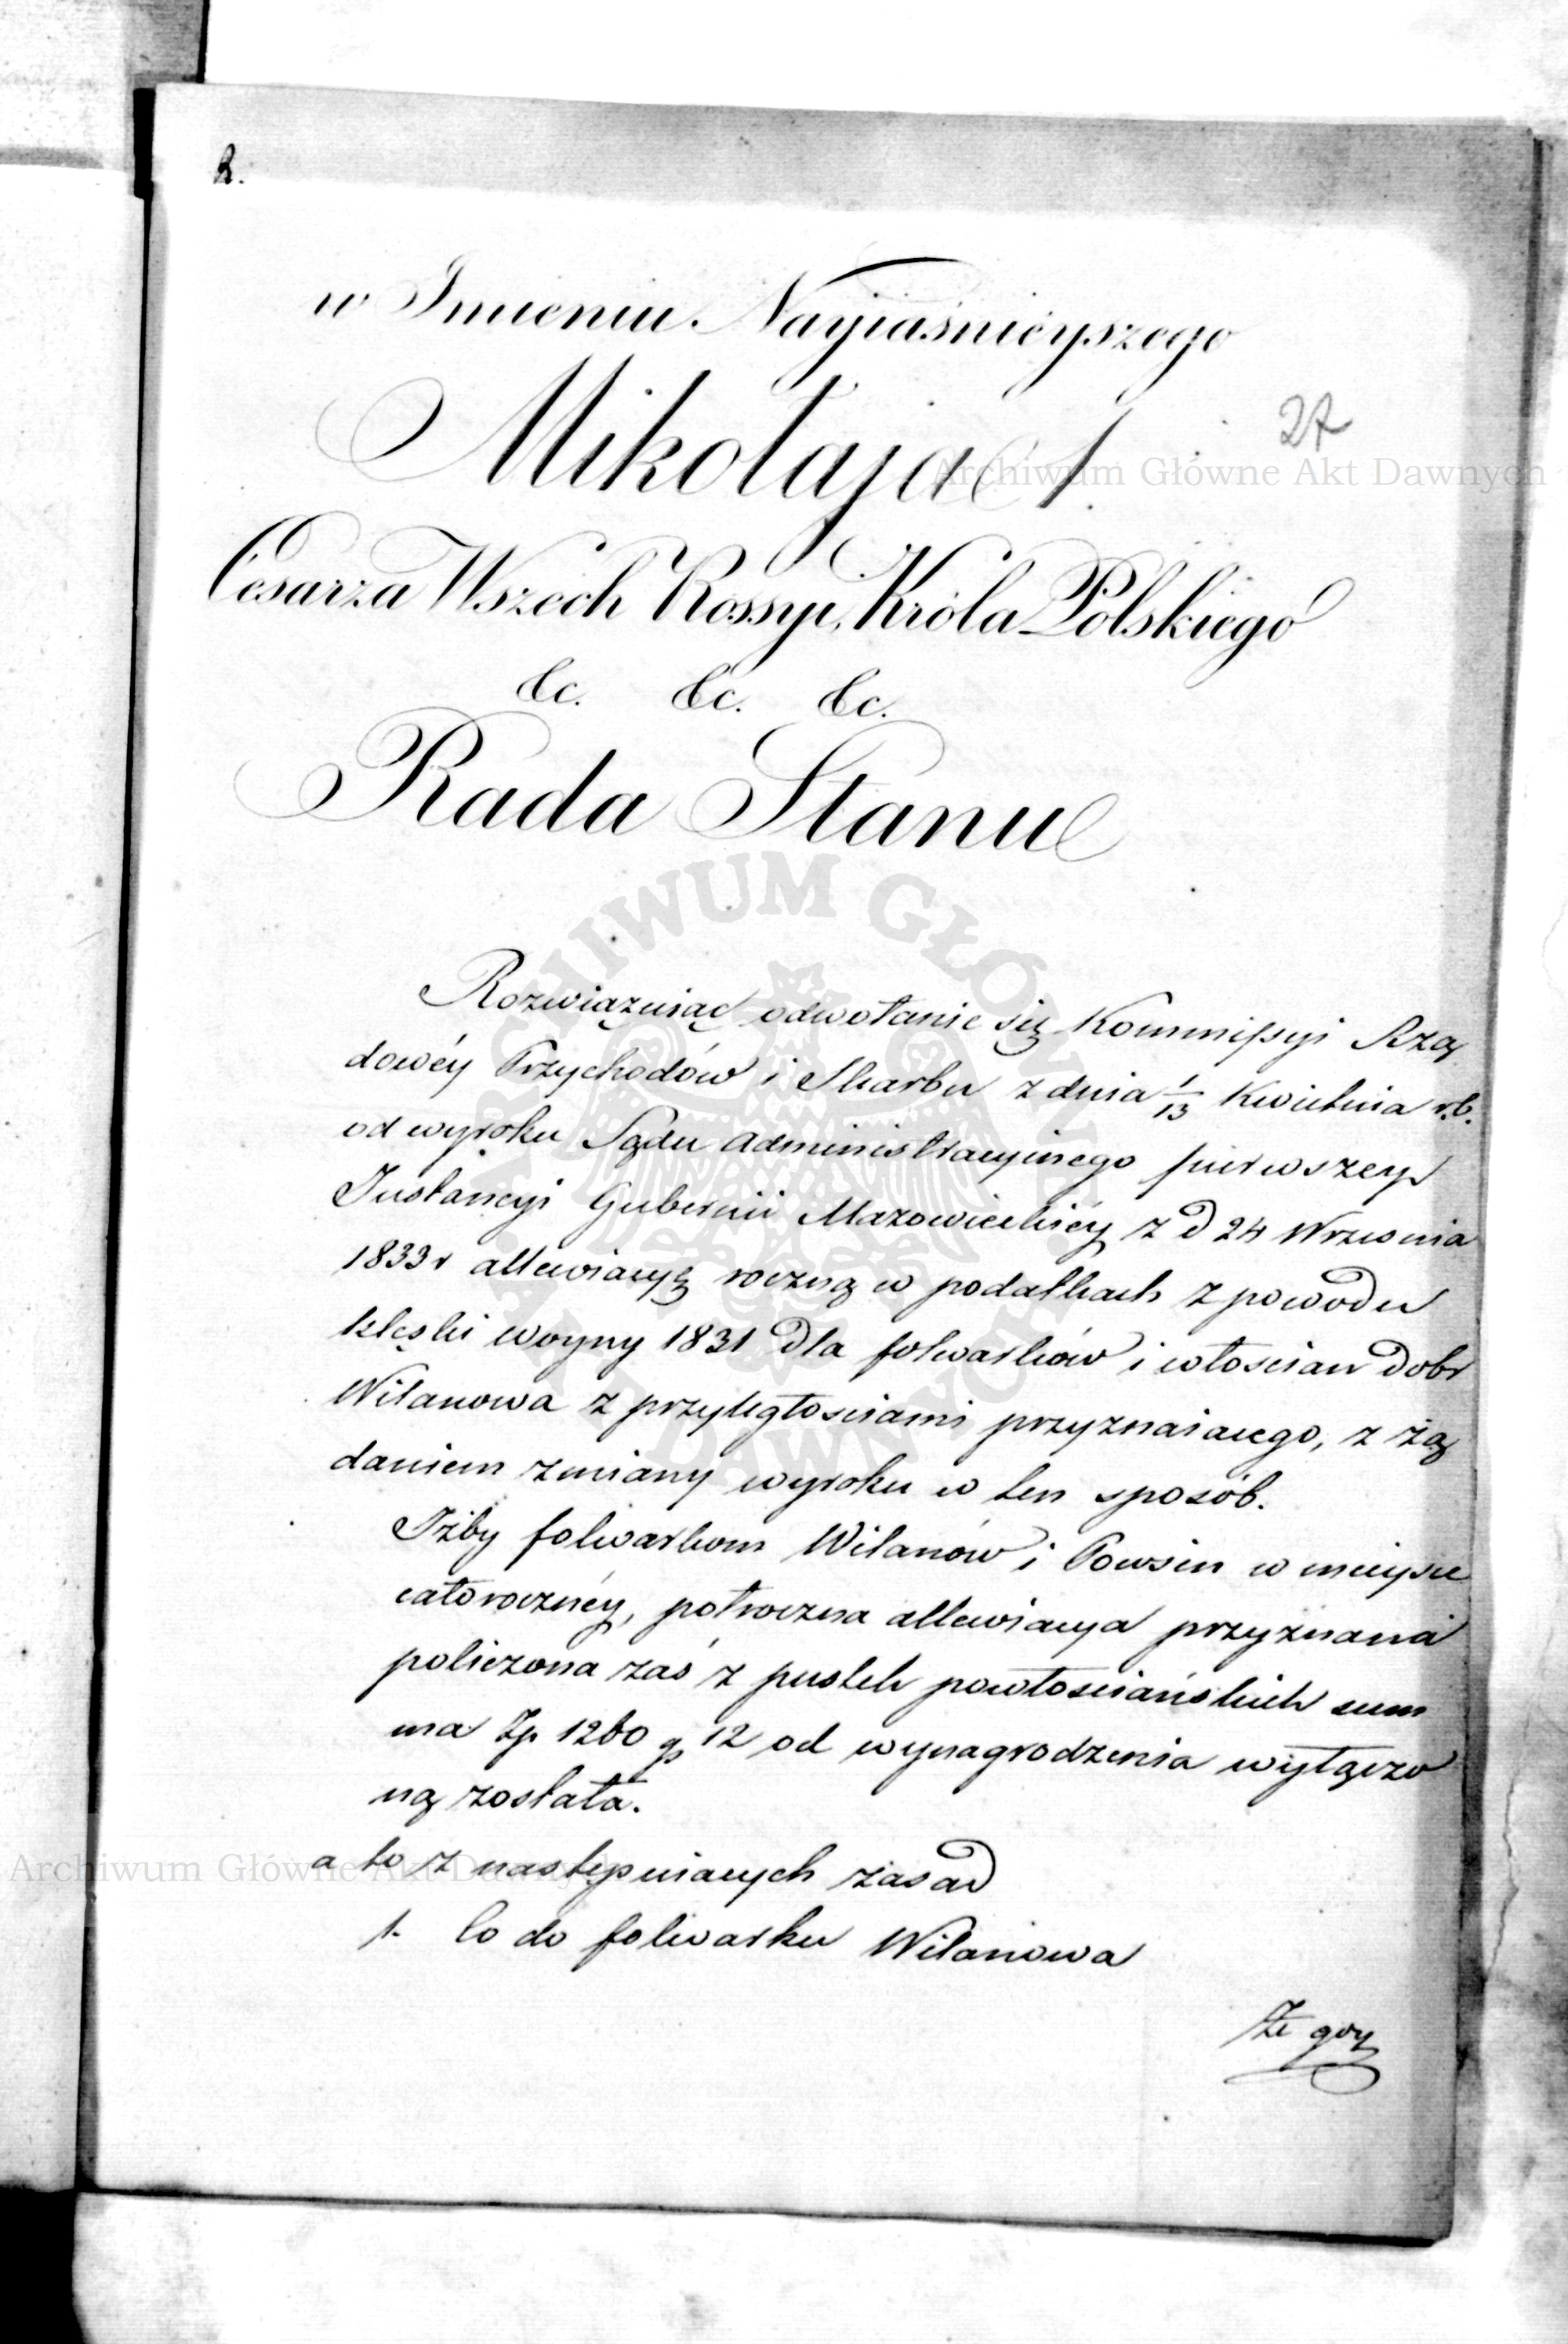 R.
w Imieniu Nayiaśnieyszego
Mikołaja I.
27
Archiwum Główne Akt Dawnych
Cesarza Wszech Rossyi, Króla Polskiego
&c. &c. &c.
Rada Stanu
ARCHIWUM GŁÓWNE AKT DAWNYCH
Rozwiązuiąc odwołanie się Kommissyi Rzą
dowéy Przychodów i Skarbu z dnia 1/13 Kwietnia r.b.
od wyroku Sądu Administracyinego pierwszey
Instancyi Gubernii Mazowieckiéy z d 24 Września
1833 r allewiacyą roczną w podatkach z powodu
klęski woyny 1831 dla folwarków i włościan Dobr
Wilanowa z przyległościami przyznaiącego, z żą
daniem zmiany wyroku w ten sposób.
Iżby folwarkom Wilanów i Powsin w mieysce
całorocznéy, półroczna allewiacya przyznana
policzona zaś z pustek powłościańskich sum
ma Zp 1260 gr 12 od wynagrodzenia wyłączo
ną została.
Archiwum Główne Akt Dawnych
a to z następuiących zasad
1. Co do folwarku Wilanowa
Że gdy